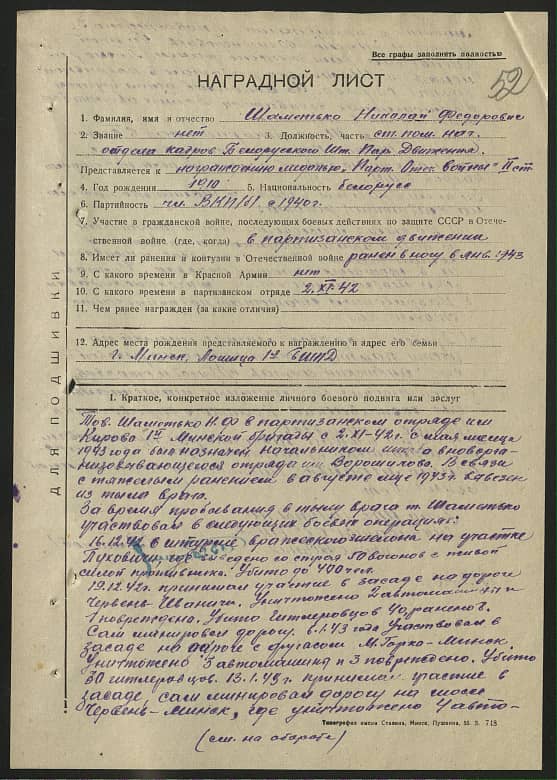 Все графы заполнить полностью
52
НАГРАДНОЙ ЛИСТ
1. Фамилия, имя и отчество Шаметько Николай Федорович
2. Звание нет 3. Должность, часть ст. пом. нач.
отдела кадров Белорусского Шт. Пар. Движения.
Представляется к награждению медалью „Парт. Отеч. войны" II ст.
4. Год рождения 1910 5. Национальность белорусс
6. Партийность чл. ВКП/б/ с 1940г.
7. Участие в гражданской войне, последующих боевых действиях по защите СССР в Отече-
ственной войне (где, когда) в партизанском движении
8. Имеет ли ранения и контузии в Отечественной войне ранен в ногу в янв. 1943
9. С какого времени в Красной Армии нет
10. С какого времени в партизанском отряде 2.XI-42
11. Чем ранее награжден (за какие отличия)
12. Адрес места рождения представляемого к награждению и адрес его семьи
г. Минск, Лошица 1я БШПД
ДЛЯ ПОДШИВКИ
I. Краткое, конкретное изложение личного боевого подвига или заслуг
Тов. Шаметько Н.Ф в партизанском отряде им
Кирова 1й Минской бригады с 2-XI-42г. с мая месяца
1943 года был назначен начальником штаба вновь орга-
низовывающегося отряда им Ворошилова. В связи
с тяжелым ранением в августе м-це 1943г. вывезен
из тыла врага.
За время пребывания в тылу врага т. Шаметько
участвовал в следующих боевых операциях:
16.12.42 в штурме вражеского эшелона на участке
Пуховичи, где выведено со строя 50 вагонов с живой
силой противника. Убито до 400 чел.
19.12.42г. принимал участие в засаде на дороге
Червень Шаничи. Уничтожено 2 автомашины и
1 повреждена. Убито гитлеровцев 4 и ранено 2.
Сам минировал дорогу. 6.1.43 года участвовал в
засаде на дороге с фугасом М. Горка-Минск.
Уничтожено 3 автомашины и 3 повреждено. Убито
30 гитлеровцев. 13.1.43г. принимал участие в
засаде, сам минировал дорогу на шоссе
Червень-Минск, где уничтожено 4 авто-
Типография имени Сталина, Минск, Пушкина, 55 З. 713
(см. на обороте)